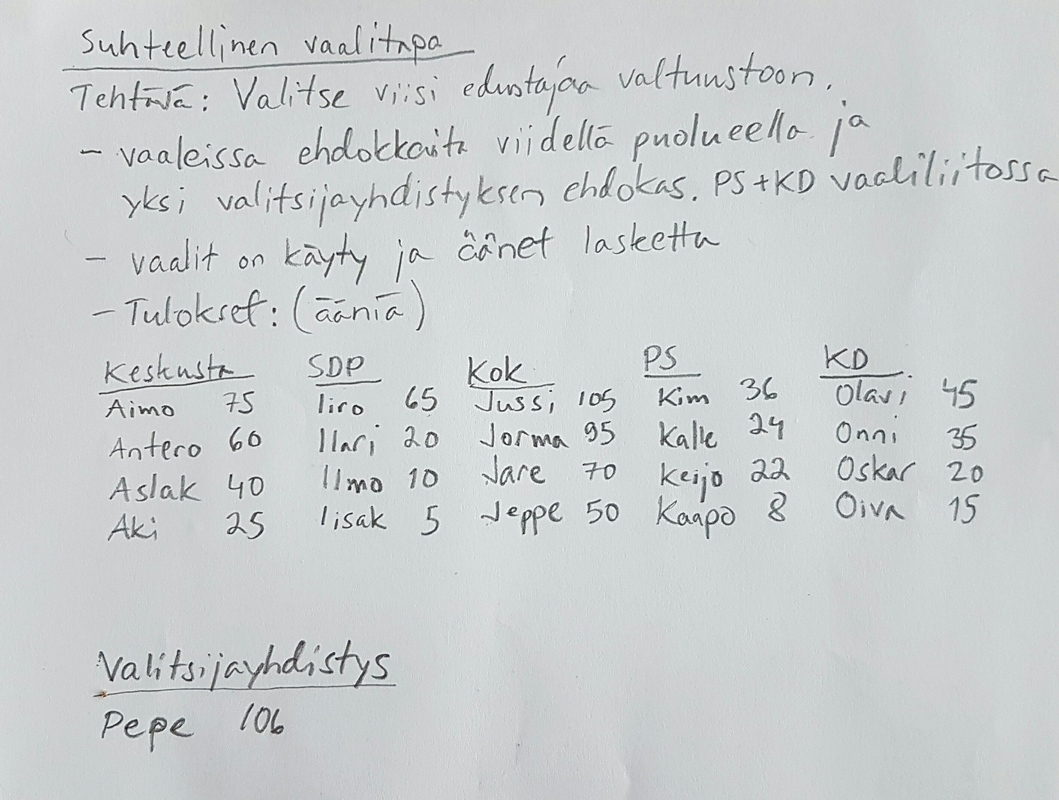 Suhteellinen vaalitapa
Tehtävä: Valitse viisi edustajaa valtuustoon.
- vaaleissa ehdokkaita viidellä puolueella ja
yksi valitsijayhdistyksen ehdokas. PS+KD vaaliliitossa
- vaalit on käyty ja äänet laskettu
- Tulokset: (ääniä)
Keskusta SDP Kok PS KD
Aimo 75 Iiro 65 Jussi 105 Kim 36 Olavi 45
Antero 60 Ilari 20 Jorma 95 Kalle 24 Onni 35
Aslak 40 Ilmo 10 Jare 70 Keijo 22 Oskar 20
Aki 25 Iisak 5 Jeppe 50 Kaapo 8 Oiva 15
Valitsijayhdistys
Pepe 106